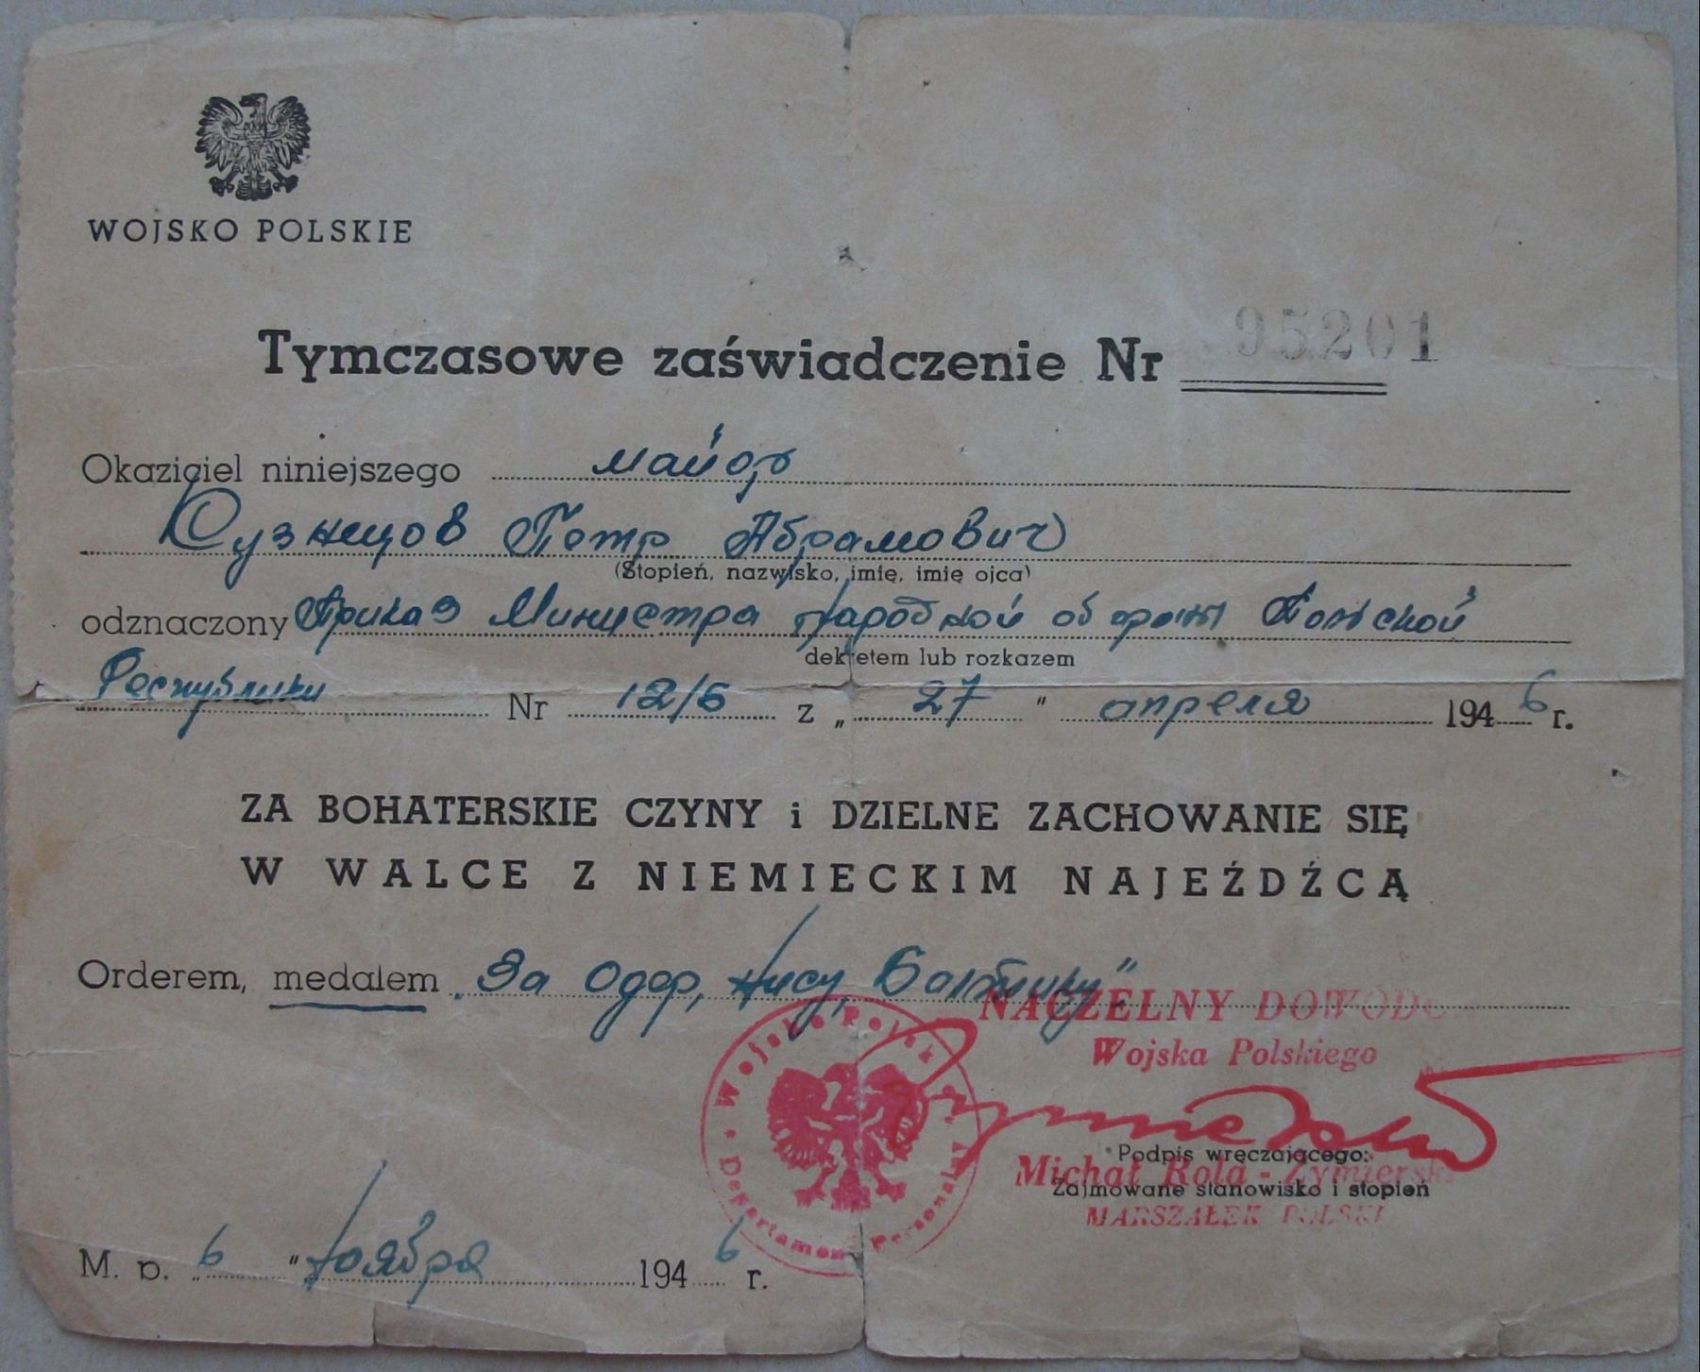 WOJSKO POLSKIE
Tymczasowe zaświadczenie Nr 95201
Okaziciel niniejszego майор
Кузнецов Петр Абрамович
(Stopień, nazwisko, imię, imię ojca)
odznaczony Приказ Министра Народной обороны Польской
dekretem lub rozkazem
Республики Nr 12/6 z „ 27 " апреля 1946 r.
ZA BOHATERSKIE CZYNY i DZIELNE ZACHOWANIE SIĘ
W WALCE Z NIEMIECKIM NAJEŹDŹCĄ
Orderem, medalem „За Одер, Нису, Балтику"
NACZELNY DOWÓDC
Wojska Polskiego
Podpis wręczającego:
Michał Rola - Żymierski
Zajmowane stanowisko i stopień
MARSZAŁEK POLSKI
Wojsko Polskie
Departament Personalny
M. p. „ 6 " Ноября 1946 r.